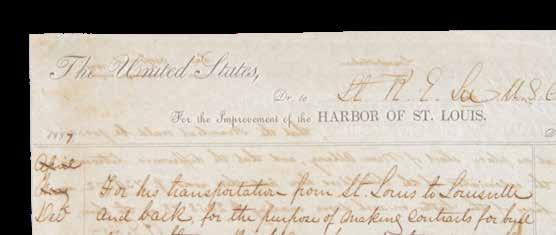 The United States,
Dr. to Lt. R. E. Lee U.S.
For the Improvement of the HARBOR OF ST. LOUIS.
1837
April
May
Decr For his transportation from St. Louis to Louisville
and back, for the purpose of making contracts for